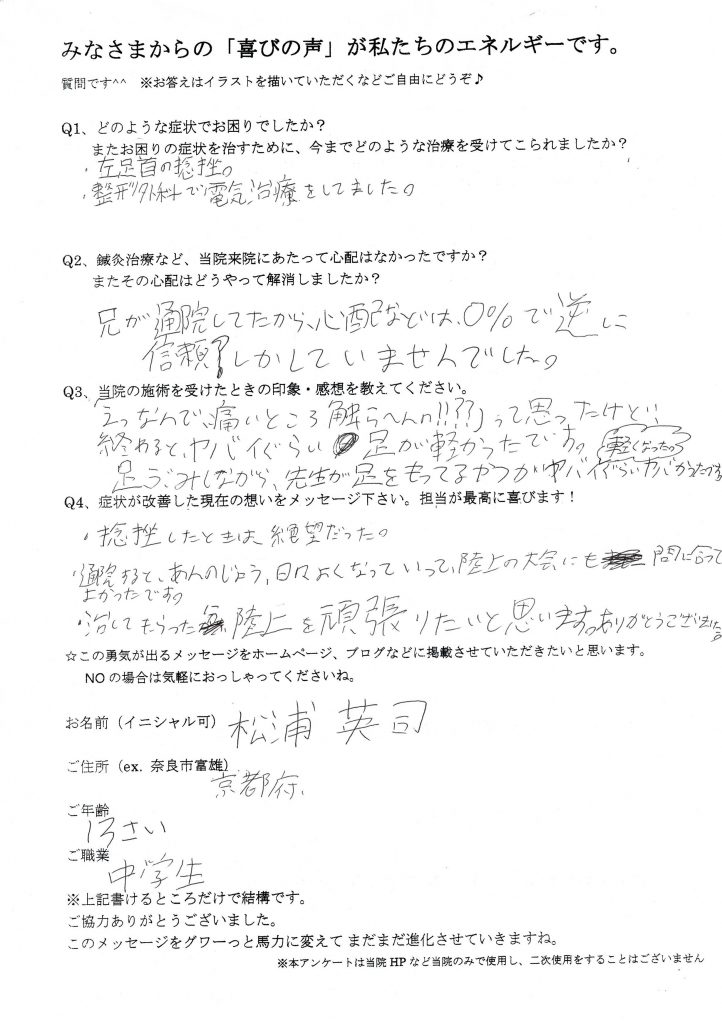 みなさまからの「喜びの声」が私たちのエネルギーです。
質問です^^　※お答えはイラストを描いていただくなどご自由にどうぞ♪
Q1、どのような症状でお困りでしたか？
またお困りの症状を治すために、今までどのような治療を受けてこられましたか？
・左足首の捻挫。
・整形外科で電気治療をしてました。
Q2、鍼灸治療など、当院来院にあたって心配はなかったですか？
またその心配はどうやって解消しましたか？
兄が通院してたから、心配などは、0％で逆に
信頼しかしていませんでした。
Q3、当院の施術を受けたときの印象・感想を教えてください。
「えっなんで、痛いところ触らへんの!!??」って思ったけど!!
終わると、ヤバイぐらい足が軽かったです。軽くなったの
足ぶみしながら、先生が足をもってるやつがヤバイぐらいヤバかったです
Q4、症状が改善した現在の想いをメッセージ下さい。担当が最高に喜びます！
・捻挫したときは絶望だった。
・通院すると、あんのじょう、日々よくなっていって、陸上の大会にも間に合って
よかったです。
・治してもらった陸上を頑張りたいと思います。ありがとうございました。
☆この勇気が出るメッセージをホームページ、ブログなどに掲載させていただきたいと思います。
NOの場合は気軽におっしゃってくださいね。
お名前（イニシャル可）松浦 英司
ご住所（ex. 奈良市富雄）
京都府.
ご年齢
13さい
ご職業
中学生
※上記書けるところだけで結構です。
ご協力ありがとうございました。
このメッセージをグワーっと馬力に変えて まだまだ進化させていきますね。
※本アンケートは当院HPなど当院のみで使用し、二次使用をすることはございません